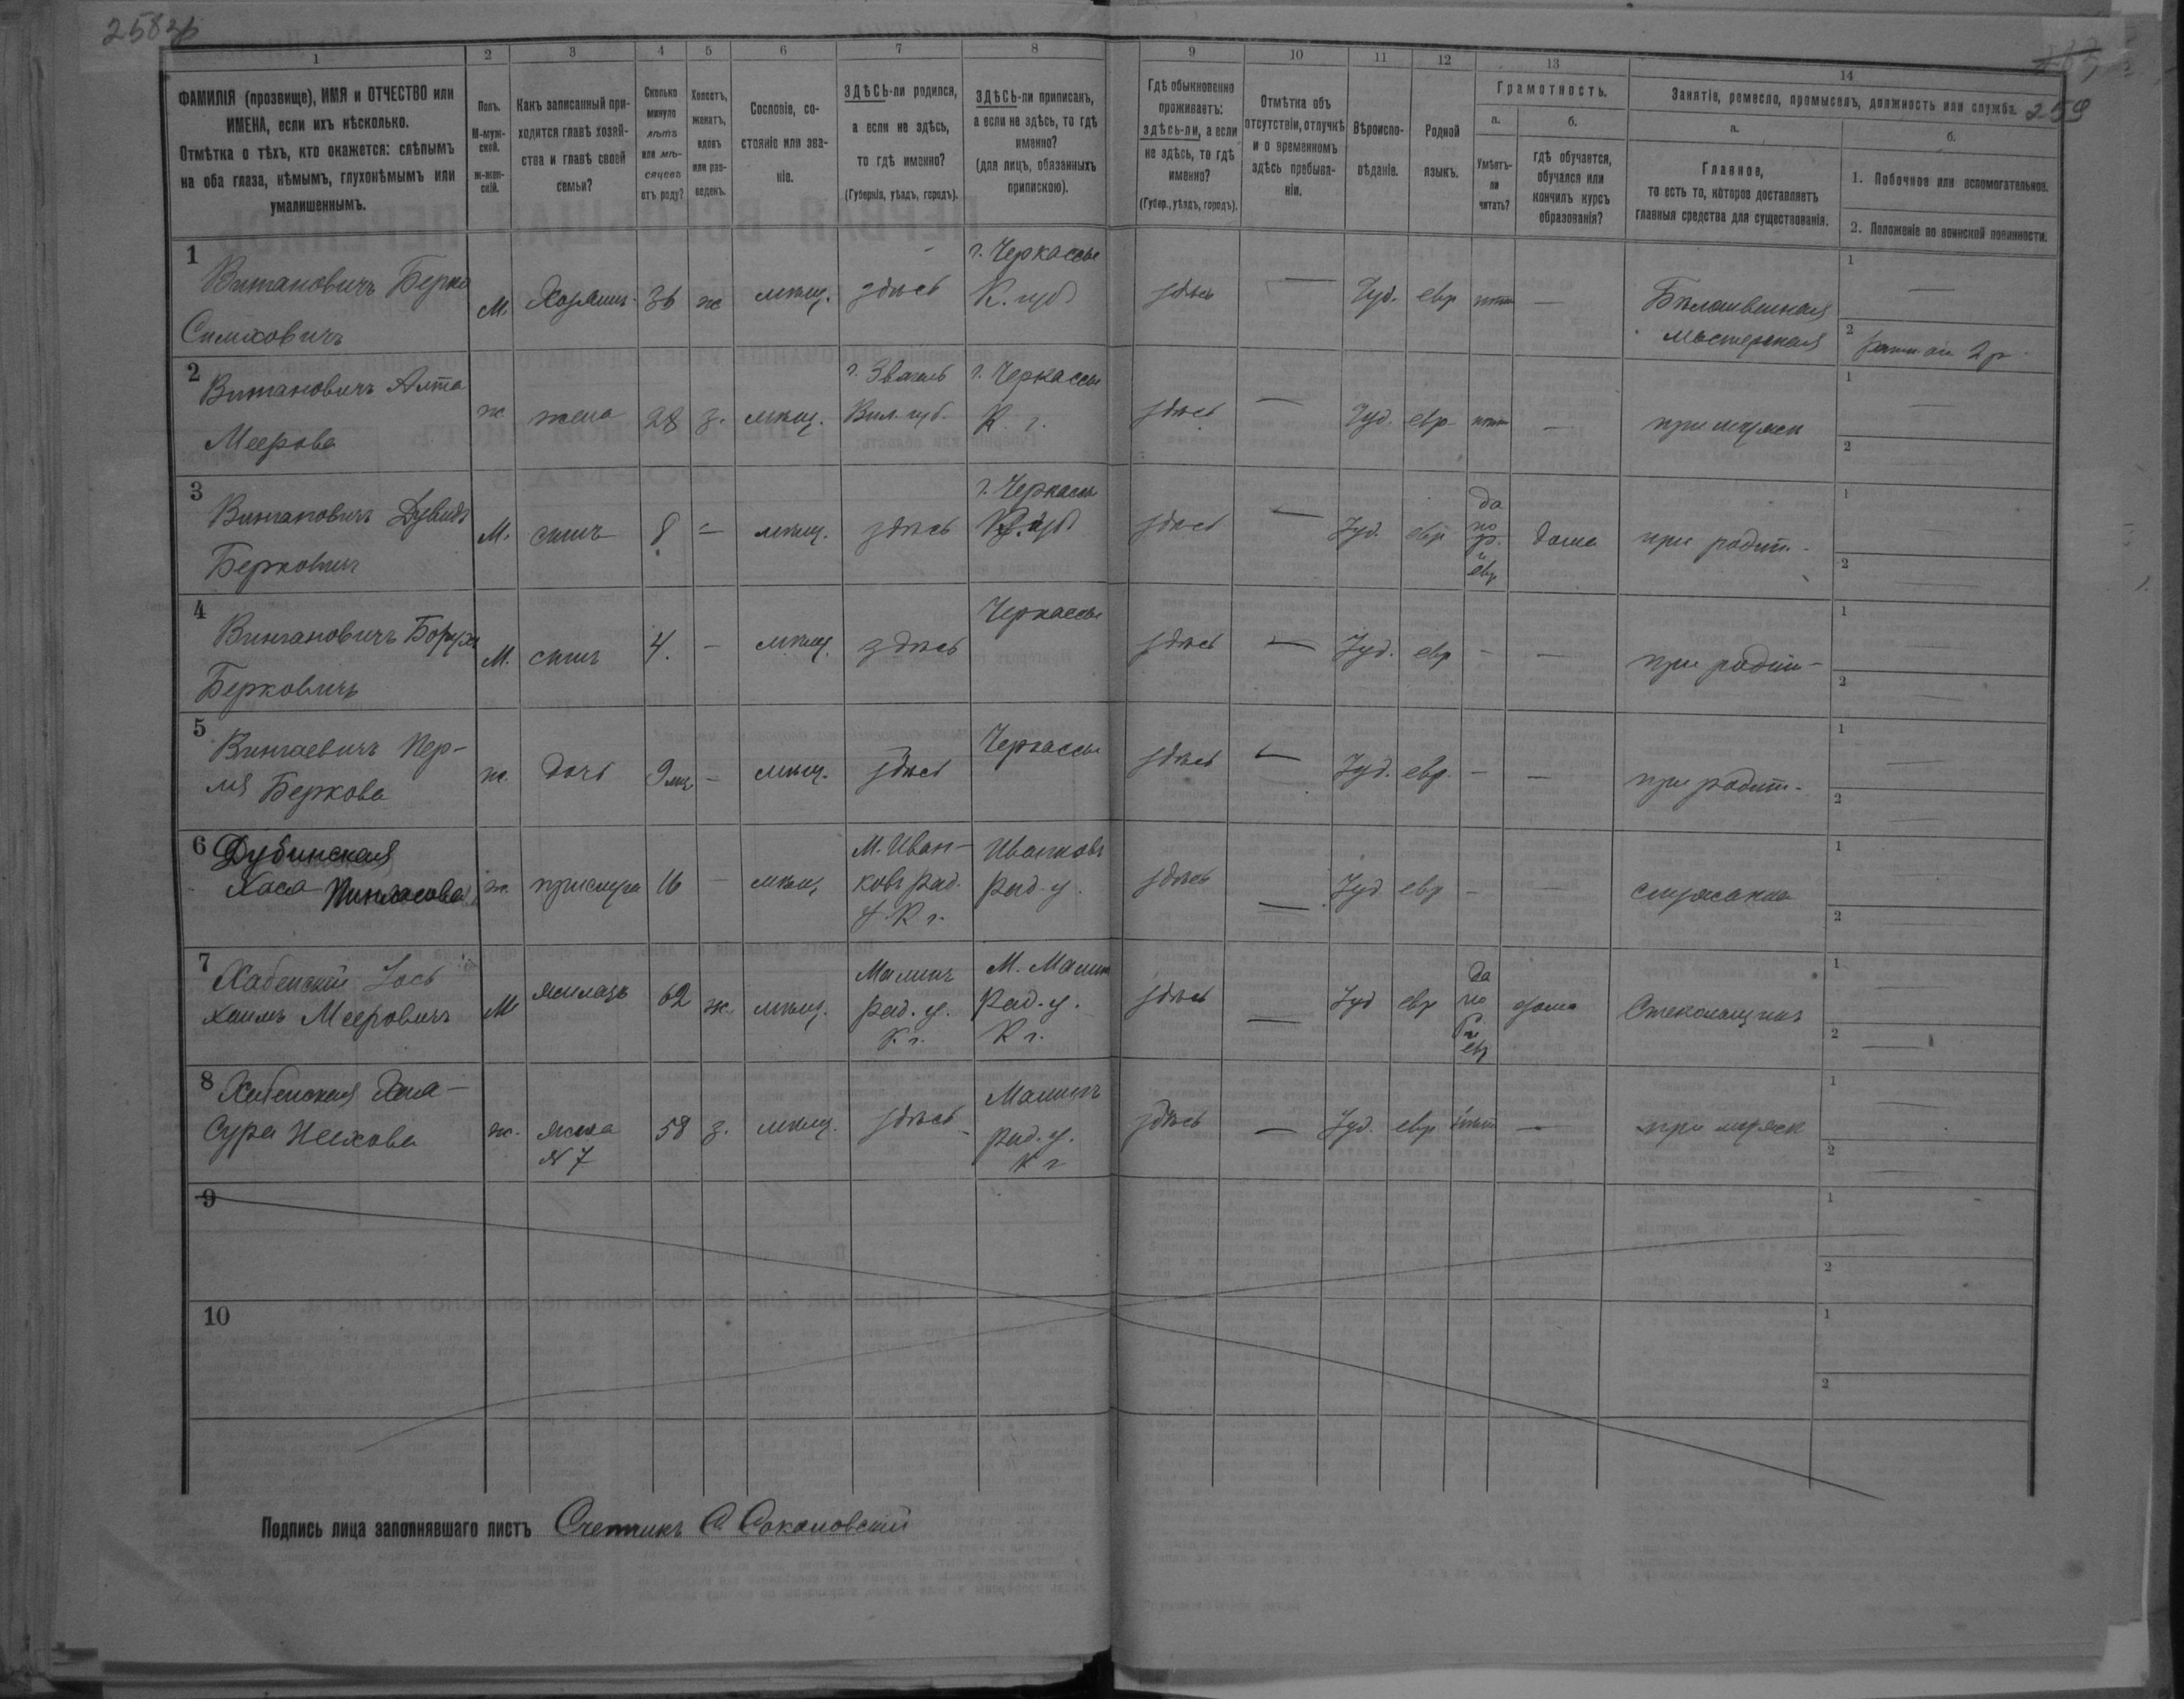 258
259
1 2 3 4 5 6 7 8 9 10 11 12 13 14
ФАМИЛІЯ (прозвище), ИМЯ и ОТЧЕСТВО или
ИМЕНА, если ихъ нѣсколько.
Отмѣтка о тѣхъ, кто окажется: слѣпымъ
на оба глаза, нѣмымъ, глухонѣмымъ или
умалишеннымъ.
Полъ.
М-муж-
ской.
ж-жен-
скій.
Какъ записанный при-
ходится главѣ хозяй-
ства и главѣ своей
семьи?
Сколько
минуло
лѣтъ
или мѣ-
сяцевъ
отъ роду?
Холостъ,
женатъ,
вдовъ
или раз-
веденъ.
Сословіе, со-
стояніе или зва-
ніе.
ЗДѢСЬ-ли родился,
а если не здѣсь,
то гдѣ именно?
(Губернія, уѣздъ, городъ).
ЗДѢСЬ-ли приписанъ,
а если не здѣсь, то гдѣ
именно?
(для лицъ, обязанныхъ
припискою).
Гдѣ обыкновенно
проживаетъ:
здѣсь-ли, а если
не здѣсь, то гдѣ
именно?
(Губер., уѣздъ, городъ).
Отмѣтка объ
отсутствіи, отлучкѣ
и о временномъ
здѣсь пребыва-
ніи.
Вѣроиспо-
вѣданіе.
Родной
языкъ.
Грамотность.
а.
Умѣетъ-
ли
читать?
б.
гдѣ обучается,
обучался или
кончилъ курсъ
образованія?
Занятіе, ремесло, промыселъ, должность или служба.
а.
Главное,
то есть то, которое доставляетъ
главныя средства для существованія.
б.
1. Побочное или вспомогательное.
2. Положеніе по воинской повинности.
1
Берко
Симховичъ
М. 36 ж мѣщ. здѣсь
г. Черкассы
К. губ
здѣсь — Іуд. евр нѣтъ —
мастерская
1 —
2
2
Алта
Меерова
ж жена 28 з. мѣщ.
Вил. губ.
г. Черкассы
К. г.
здѣсь — Іуд. евр нѣтъ — при мужѣ
1 —
2
3
Берковичъ
М. сынъ 8 — мѣщ. здѣсь
г. Черкассы
здѣсь — Іуд. евр
да
по
р.
и
евр
дома при родит.
1
2
4
Борухъ
Берковичъ
М. сынъ 4. — мѣщ. здѣсь Черкассы здѣсь — Іуд. евр — — при родит—
1
2
5
Пер-
ля Беркова
ж. дочь 9 мц — мѣщ. здѣсь Черкассы здѣсь — Іуд. евр. — — при родит.
1
2
6 Дубинская
Хася Пинхасова
ж. прислуга 16 — мѣщ
М. Иван-
ковъ Рад.
у. К г.
Иванковъ
Рад. у.
здѣсь — Іуд евр — — служанка
1
2
7
Хабенскій Іось
Хаимъ Мееровичъ
М жилецъ 62 ж. мѣщ.
Малинъ
Рад. у.
К г.
М. Малин
Рад. у.
К г.
здѣсь — Іуд евр
да
по
р.
и
евр
дома Стекольщикъ
1
2
8
Хабенская
Сура
ж.
жена
№ 7
58 з. мѣщ. здѣсь
Малинъ
Рад. у.
К г
здѣсь — Іуд. евр нѣтъ — при мужѣ
1
2
9
1
2
10
1
2
Подпись лица заполнявшаго листъ Счетчикъ С Соколовскій